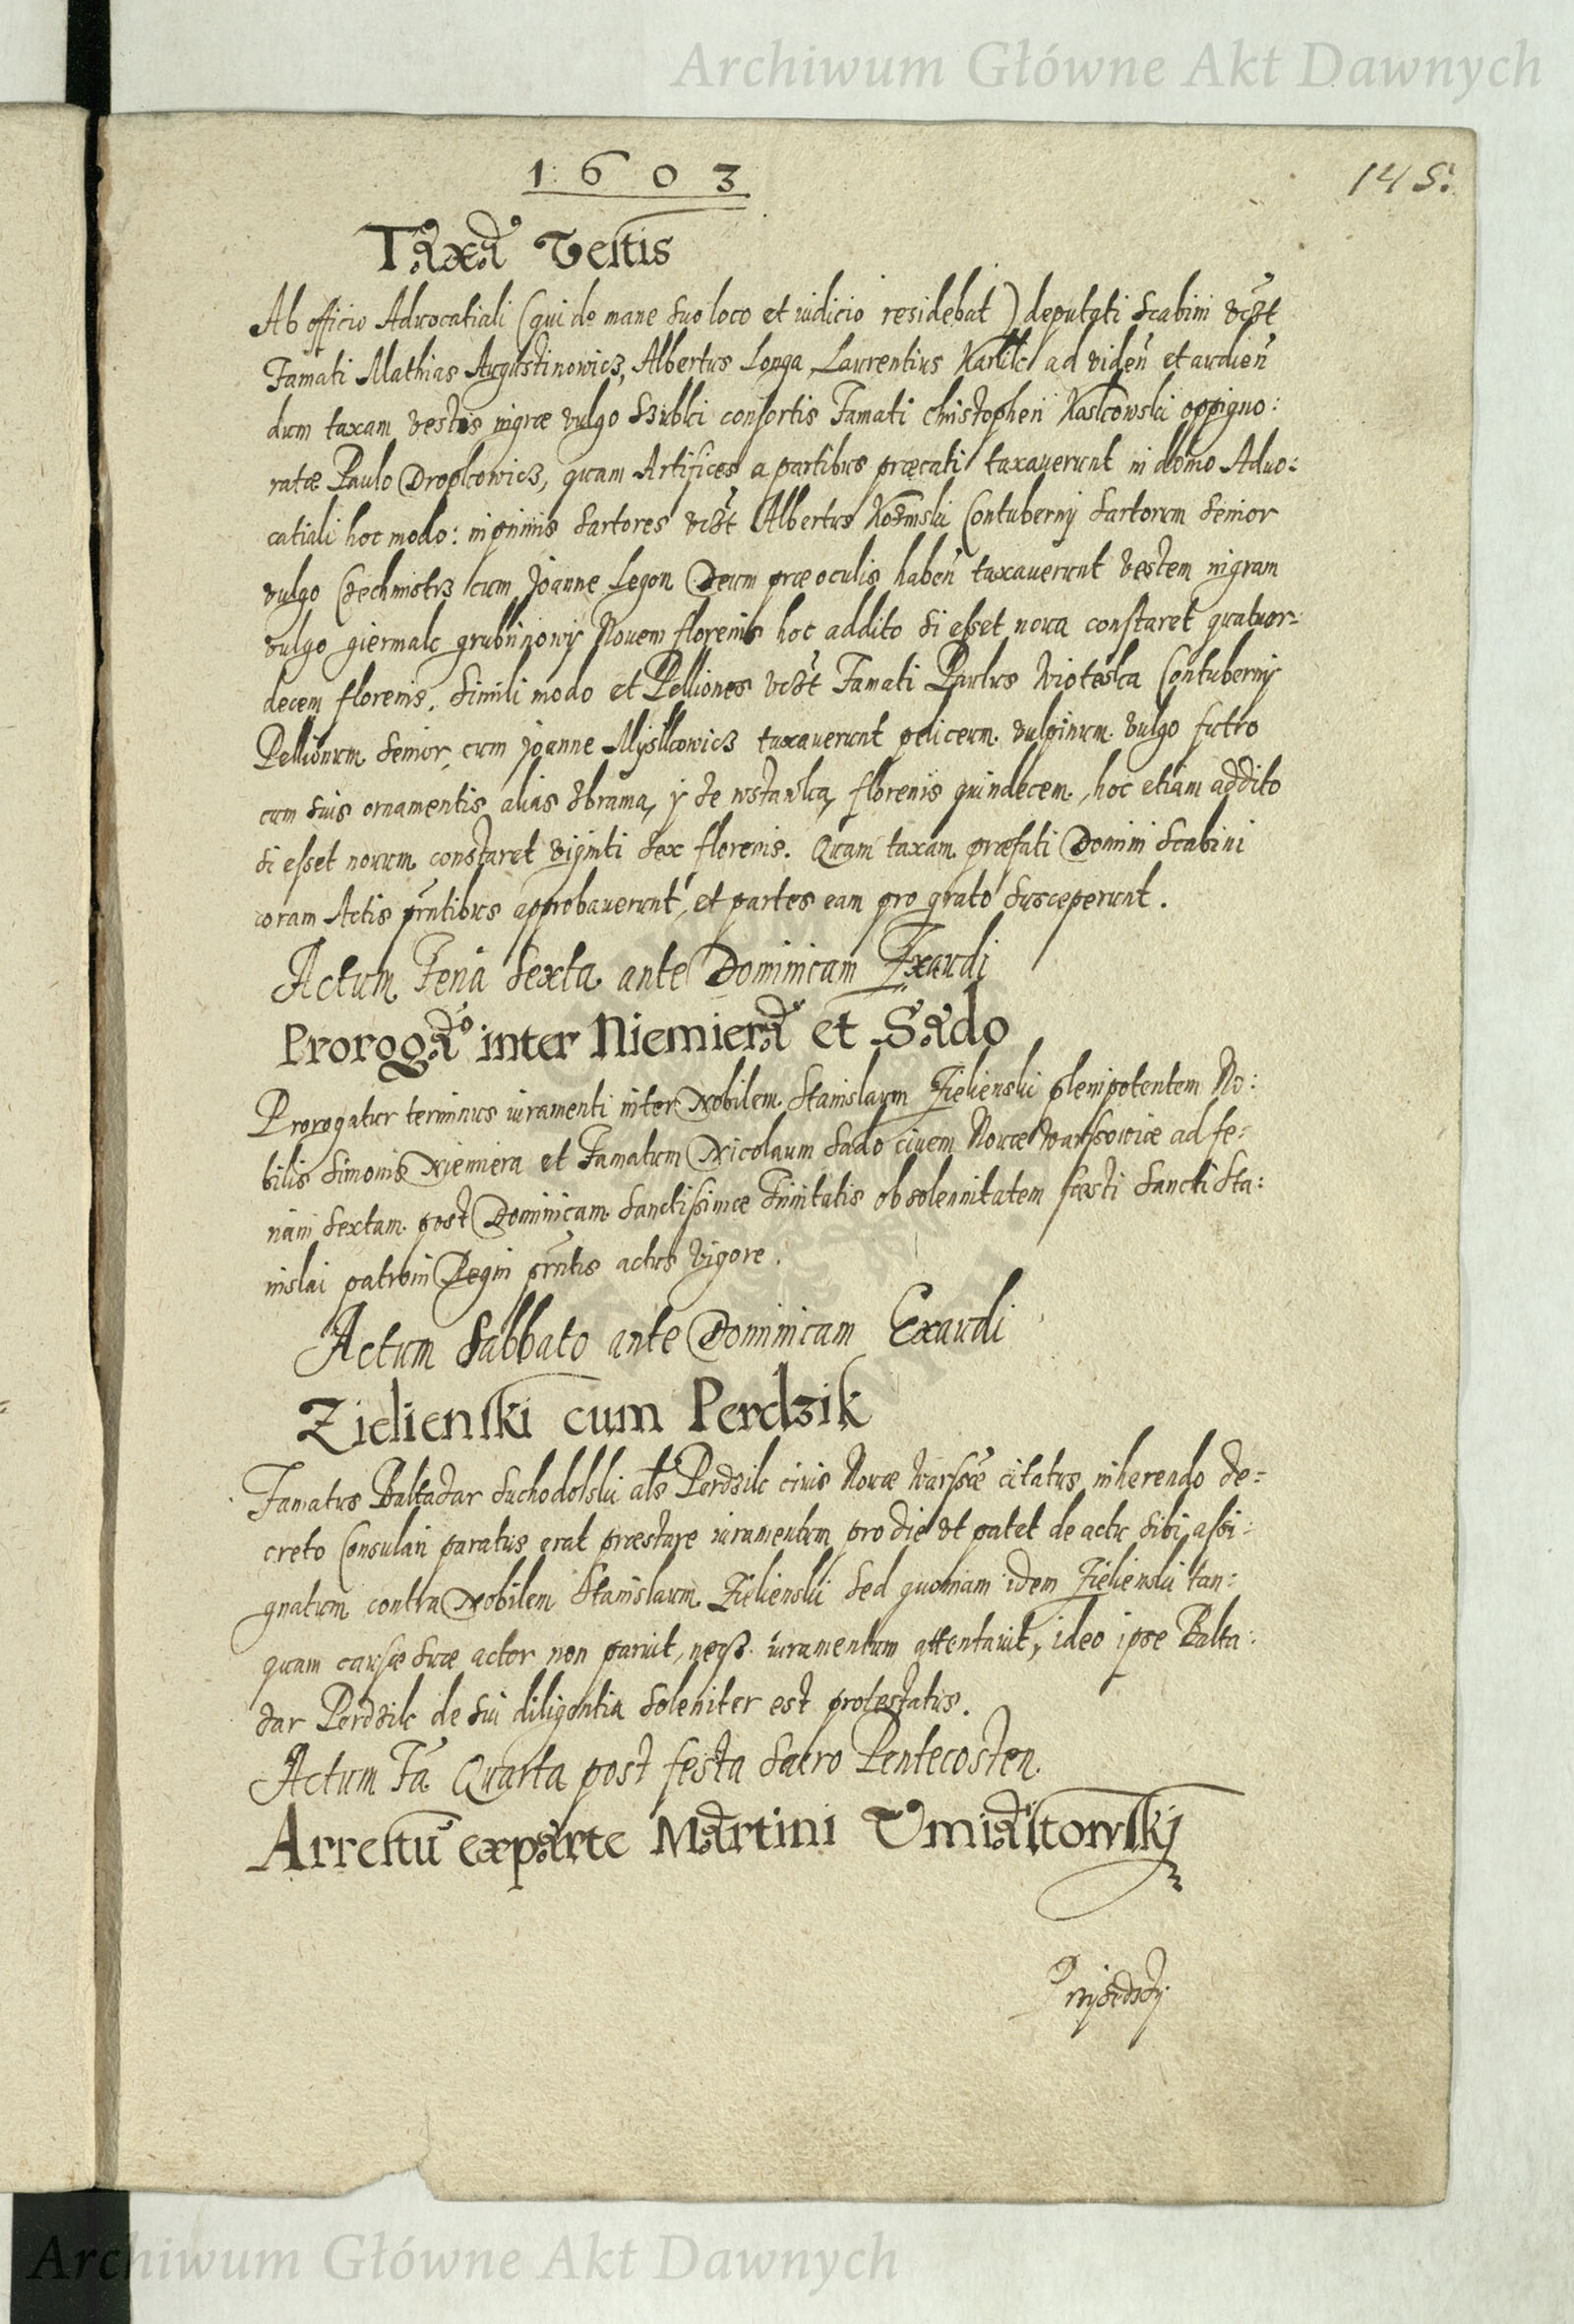 Archiwum Główne Akt Dawnych
1603
145.
Taxa Vestis
Ab officio Advocatiali (qui de mane suo loco et iudicio residebat) deputati Scabini vczt
Famati Mathias Augustinowicz, Albertus Longa, Laurentius Karlik ad viden et audien
dum taxam vestis nigræ vulgo Szubki consortis Famati Christopheri Kaskowski oppigno:
ratæ Paulo Dropkowicz, quam Artifices a partibus præcati taxaverunt in domo Advo:
catiali hoc modo: inprimis Sartores vczt Albertus Kozmski Contubernij Sartorum Senior
vulgo Czechmistrz cum Joanne Legon Deum præ oculis haben taxaverunt vestem nigram
vulgo giermak grubrinowy Novem florenis hoc addito si esset nova constaret quatuor-
decem florenis. Simili modo et Pelliones vczt Famati Paulus Wioteska Contubernij
Pellionum Senior, cum Joanne Mysłkowicz taxaverunt peliceum vulpinum vulgo futro
cum suis ornamentis alias zbrama, y ze wstawka, florenis quindecem, hoc etiam addito
si esset novum constaret viginti sex florenis. Quam taxam præfati Domini Scabini
coram Actis prntibus approbaverunt, et partes eam pro grato susceperunt.
Actum Feria Sexta ante Dominicam Exaudi
Proroga inter Niemiera et Sado
Prorogatur terminus iuramenti inter Nobilem Stanislaum Zielienski plenipotentem No:
bilis Simonis Niemiera et Famatum Nicolaum Sado civem Novæ Warssowiæ ad fe-
riam sextam post Dominicam Sanctissimæ Trinitatis ob solennitatem festi Sancti Sta:
nislai patroni Regni prntis actus vigore.
Actum Sabbato ante Dominicam Exaudi
Zielienski cum Perdzik
Famatus Baltazar Suchodolski als Perdzik civis Novæ Warssæ citatus, inherendo de-
creto Consulari paratus erat præstare iuramentum pro die vt patet de actu sibi assi-
gnatum contra Nobilem Stanislaum Zielienski sed quoniam idem Zielienski tan-
quam causæ suæ actor non paruit, neqz iuramentum attentavit, ideo ipse Balta:
zar Perdzik de sui diligentia soleniter est protestatus.
Actum Fa Quarta post festa Sacro Pentecosten.
Arrestu ex parte Martini Vmiastowskj
Archiwum Główne Akt Dawnych